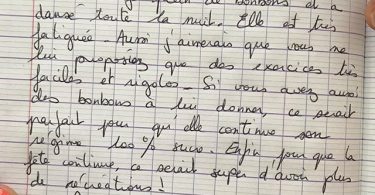 de bonbons et a
dansé toute la nuit. Elle est très
fatiguée - Aussi j'aimerais que vous ne
lui proposiez que des exercices très
faciles et rigolos - Si vous avez aussi
des bonbons à lui donner, ce serait
parfait pour qu'elle continue son
régime 100% sucre. Enfin, pour que la
fête continue, ce serait super d'avoir plus
de récréations !